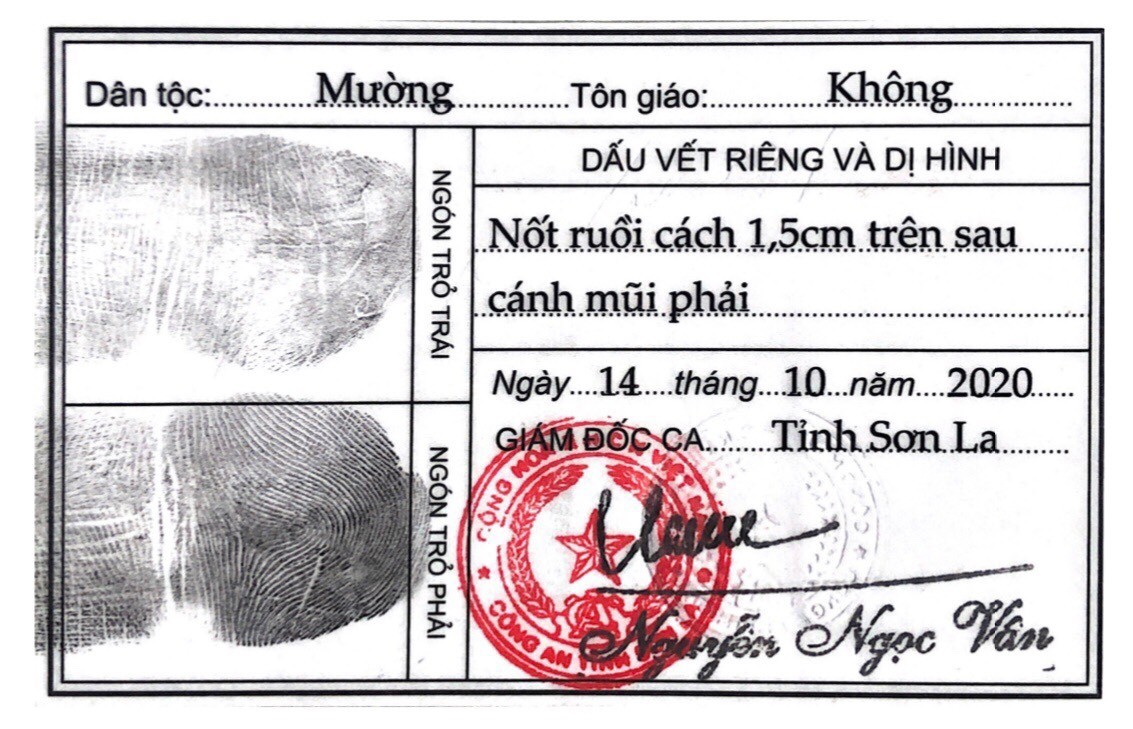 Dân tộc: Mường Tôn giáo: Không
NGÓN TRỎ TRÁI
DẤU VẾT RIÊNG VÀ DỊ HÌNH
Nốt ruồi cách 1,5cm trên sau
cánh mũi phải
Ngày 14 tháng 10 năm 2020
GIÁM ĐỐC CA Tỉnh Sơn La
NGÓN TRỎ PHẢI
CÔNG AN TỈNH
Nguyễn Ngọc Vân